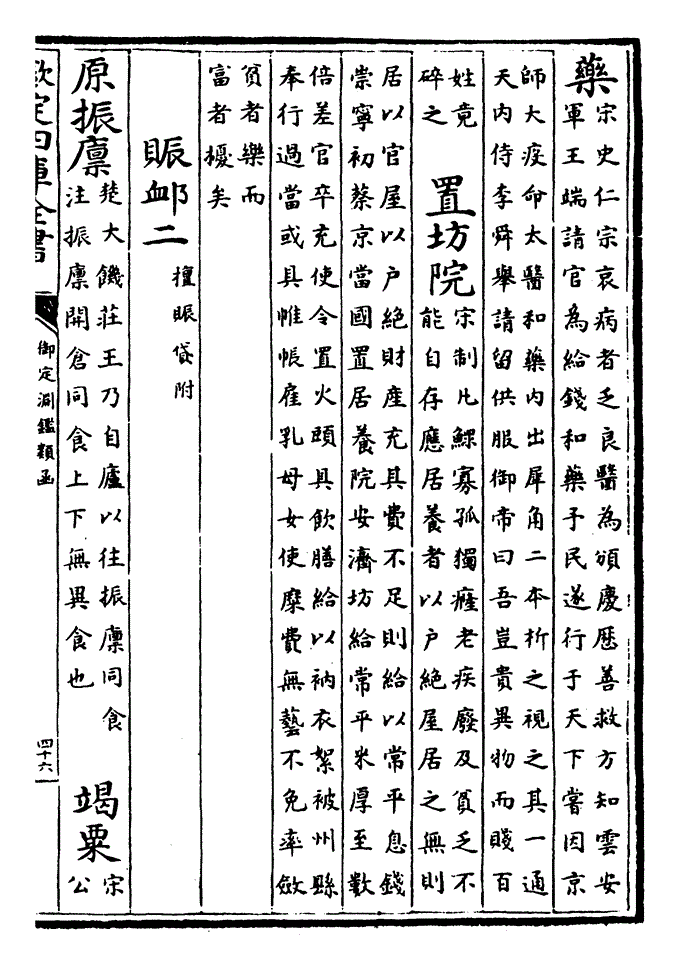 藥宋史仁宗哀病者乏良醫為頒慶厯善救方知雲安
軍王端請官為給錢和藥予民遂行于天下嘗因京
師大疫命太醫和藥内出犀角二本析之視之其一通
天内侍李舜舉請留供服御帝曰吾豈貴異物而賤百
姓竟
碎之
置坊院宋制凡鰥寡孤獨癃老疾廢及貧乏不
能自存應居養者以户絶屋居之無則
居以官屋以户絶財產充其費不足則給以常平息錢
崇寧初蔡京當國置居養院安濟坊給常平米厚至數
倍差官卒充使令置火頭具飲膳給以衲衣絮被州縣
奉行過當或具帷帳雇乳母女使糜費無藝不免率斂
貧者樂而
富者擾矣
賑䘏二擅賑貸附
原振廩楚大饑莊王乃自廬以往振廩同食
注振廩開倉同食上下無異食也
竭粟宋
公
欽定四庫全書
御定淵鑑類函
四十六